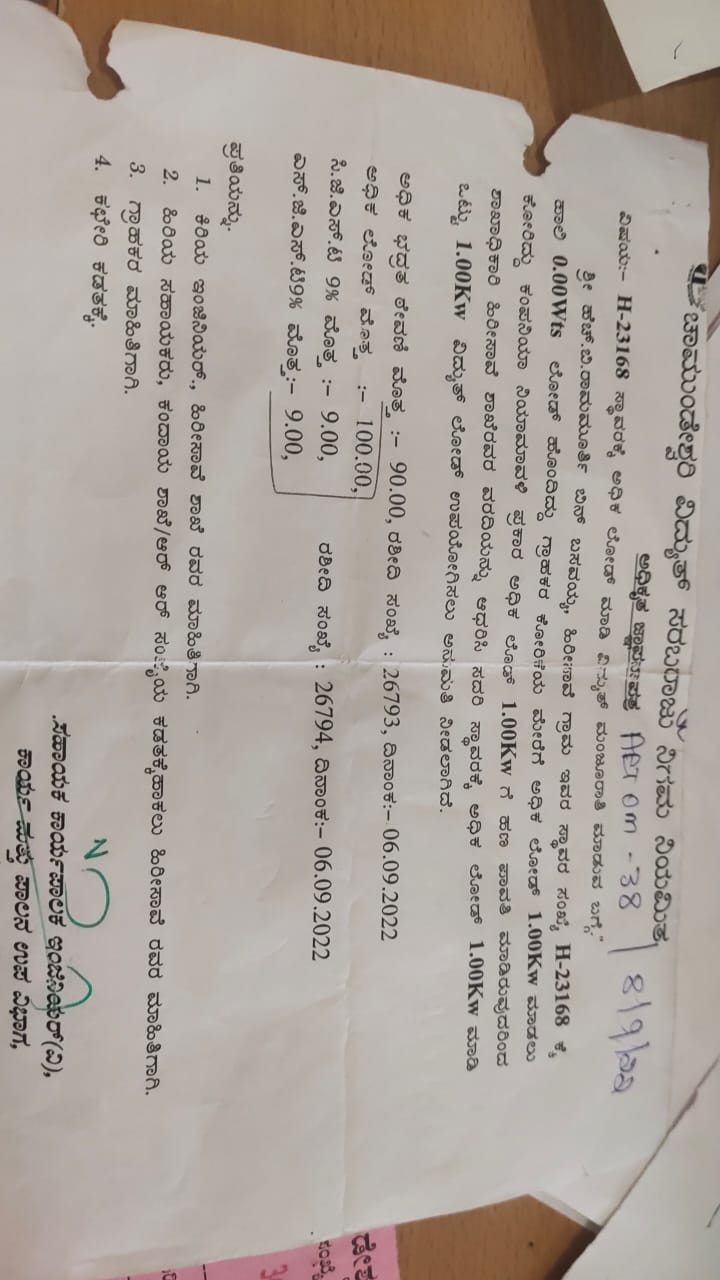 ಚಾಮುಂಡೇಶ್ವರಿ ವಿದ್ಯುತ್ ಸರಬರಾಜು ನಿಗಮ ನಿಯಮಿತ,
ಅಧಿಕೃತ ಜ್ಞಾಪನಾಪತ್ರ AET OM - 38 / 8/9/22
ವಿಷಯ:- H-23168 ಸ್ಥಾವರಕ್ಕೆ ಅಧಿಕ ಲೋಡ್ ಮಾಡಿ ವಿದ್ಯುತ್ ಮಂಜೂರಾತಿ ಮಾಡುವ ಬಗ್ಗೆ."
ಶ್ರೀ ಹೆಚ್.ಬಿ.ರಾಮಮೂರ್ತಿ ಬಿನ್ ಬಸವಯ್ಯ, ಹಿರೀಸಾವೆ ಗ್ರಾಮ ಇವರ ಸ್ಥಾವರ ಸಂಖ್ಯೆ H-23168 ಕ್ಕೆ
ಹಾಲಿ 0.00Wts ಲೋಡ್ ಹೊಂದಿದ್ದು ಗ್ರಾಹಕರ ಕೋರಿಕೆಯ ಮೇರೆಗೆ ಅಧಿಕ ಲೋಡ್ 1.00Kw ಮಾಡಲು
ಕೋರಿದ್ದು ಕಂಪನಿಯಾ ನಿಯಾಮಾವಳಿ ಪ್ರಕಾರ ಅಧಿಕ ಲೊಡ್ 1.00Kw ಗೆ ಹಣ ಪಾವತಿ ಮಾಡಿರುವುದರಿಂದ
ಶಾಖಾಧಿಕಾರಿ ಹಿರೀಸಾವೆ ಶಾಖೆರವರ ವರದಿಯನ್ನು ಆಧರಿಸಿ ಸದರಿ ಸ್ಥಾವರಕ್ಕೆ ಅಧಿಕ ಲೋಡ್ 1.00Kw ಮಾಡಿ
ಒಟ್ಟು 1.00Kw ವಿದ್ಯುತ್ ಲೋಡ್ ಉಪಯೋಗಿಸಲು ಅನುಮತಿ ನೀಡಲಾಗಿದೆ.
ಅಧಿಕ ಭದ್ರತ ಠೇವಣಿ ಮೊತ್ತ :- 90.00, ರಶೀದಿ ಸಂಖ್ಯೆ : 26793, ದಿನಾಂಕ:- 06.09.2022
ಅಧಿಕ ಲೋಡ್ ಮೊತ್ತ :- 100.00,
ಸಿ.ಜಿ.ಎಸ್.ಟಿ 9% ಮೊತ್ತ :- 9.00, ರಶೀದಿ ಸಂಖ್ಯೆ : 26794, ದಿನಾಂಕ:- 06.09.2022
ಎಸ್.ಜಿ.ಎಸ್.ಟಿ9% ಮೊತ್ತ:- 9.00,
ಪ್ರತಿಯನ್ನು:
1. ಕಿರಿಯ ಇಂಜಿನಿಯರ್., ಹಿರೀಸಾವೆ ಶಾಖೆ ರವರ ಮಾಹಿತಿಗಾಗಿ.
2. ಹಿರಿಯ ಸಹಾಯಕರು, ಕಂದಾಯ ಶಾಖೆ/ಆರ್ ಆರ್ ಸಂಖ್ಯೆಯ ಕಡತಕ್ಕೆಹಾಕಲು ಹಿರೀಸಾವೆ ರವರ ಮಾಹಿತಿಗಾಗಿ.
3. ಗ್ರಾಹಕರ ಮಾಹಿತಿಗಾಗಿ.
4. ಕಛೇರಿ ಕಡತಕ್ಕೆ.
ಸಹಾಯಕ ಕಾರ್ಯಪಾಲಕ ಇಂಜಿನಿಯರ್(ವಿ),
ಕಾರ್ಯ ಮತ್ತು ಪಾಲನ ಉಪ ವಿಭಾಗ,